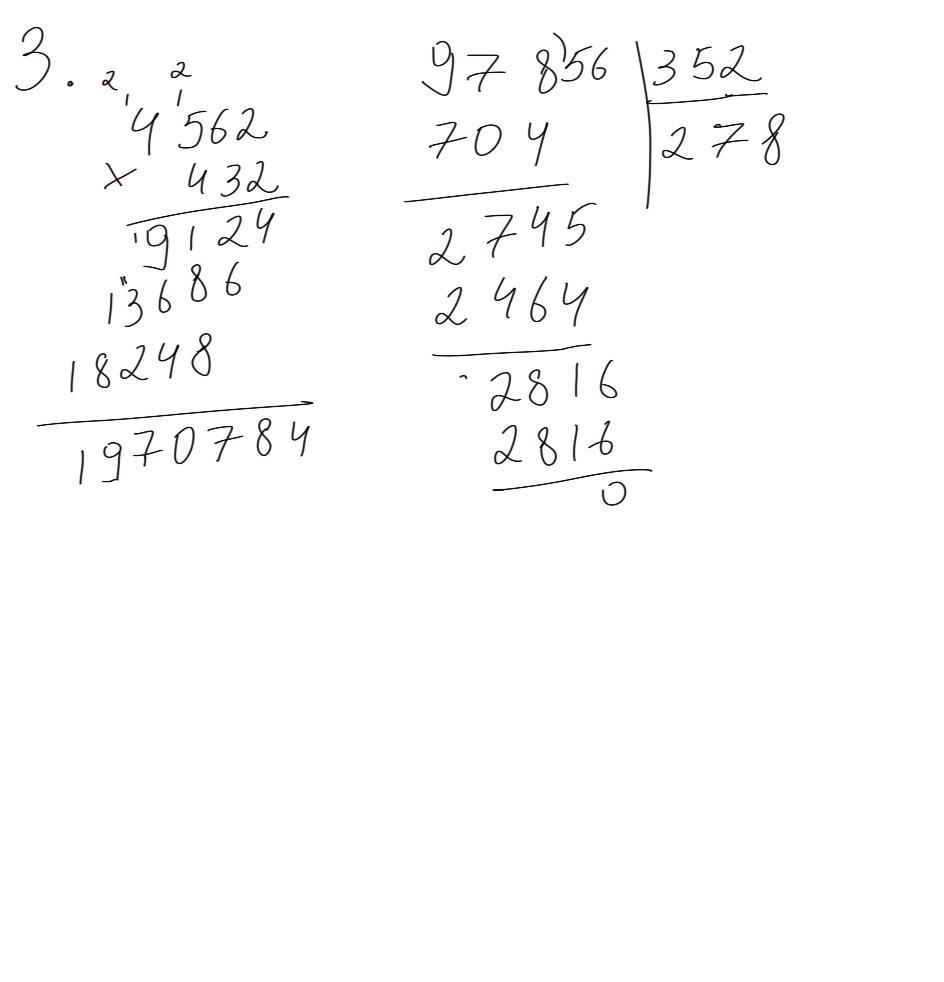 3.
2 2
1 1
4 562
× 432
9124
13686
18248
1970784
97 856 | 352
704 | 278
2745
2464
2816
2816
0